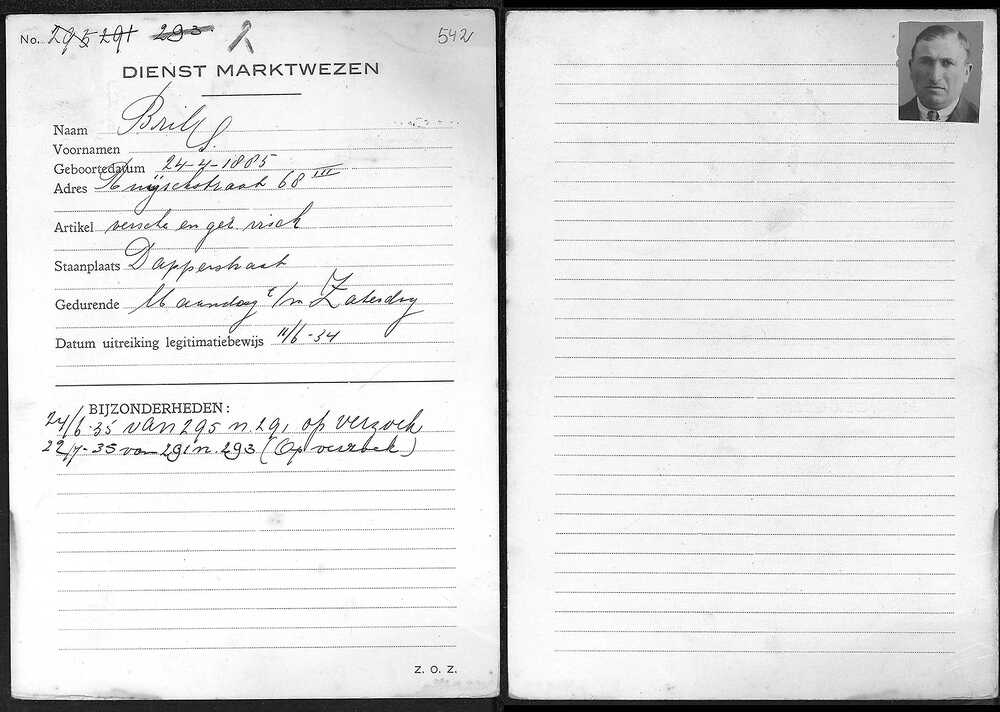 No. 295 291 293 2 542
DIENST MARKTWEZEN
Naam Bril
Voornamen S.
Geboortedatum 24-4-1885
Adres Ruijschstraat 68 III
Artikel versche en ger. visch
Staanplaats Dapperstraat
Gedurende Maandag t/m Zaterdag
Datum uitreiking legitimatiebewijs 11/6-34
BIJZONDERHEDEN:
24/6-35 van 295 n. 291 op verzoek
22/7-35 van 291 n. 293 (Op verzoek)
Z. O. Z.